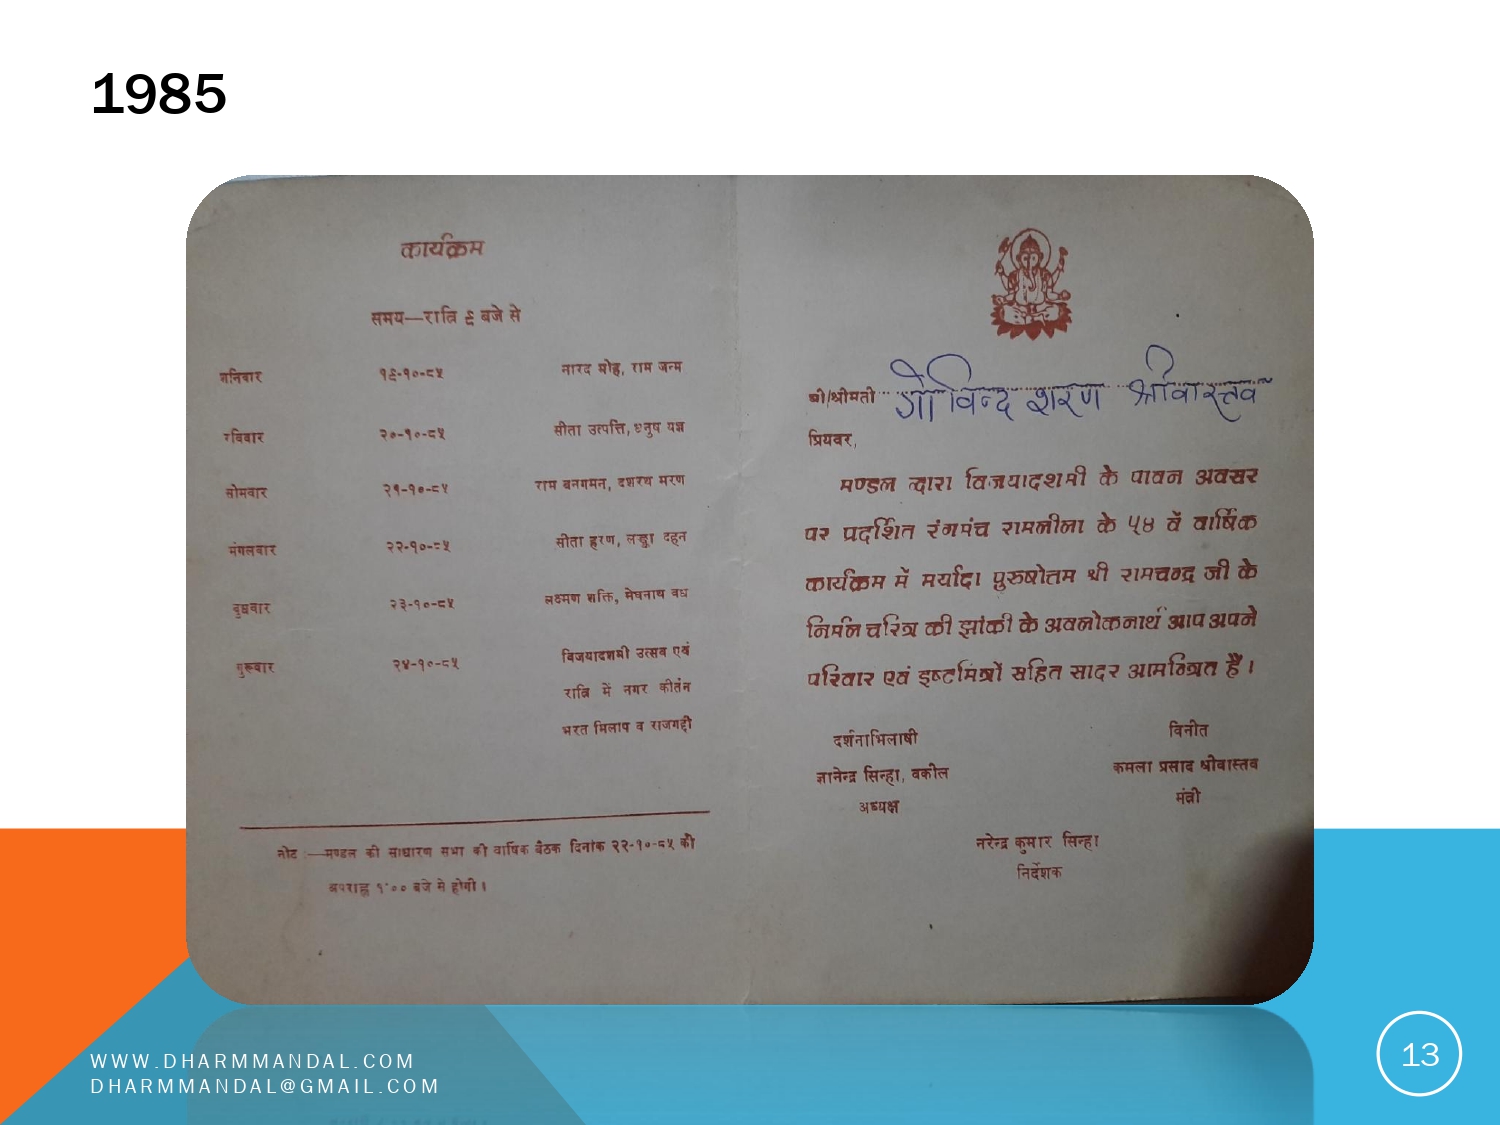 1985
कार्यक्रम
समय—रात्रि ९ बजे से
शनिवार १९-१०-८५ नारद मोह, राम जन्म
रविवार २०-१०-८५ सीता उत्पत्ति, धनुष यज्ञ
सोमवार २१-१०-८५ राम बनगमन, दशरथ मरण
मंगलवार २२-१०-८५ सीता हरण, लङ्का दहन
बुधवार २३-१०-८५ लक्ष्मण शक्ति, मेघनाथ बध
गुरूवार २४-१०-८५ विजयादशमी उत्सव एवं
रात्रि में नगर कीर्तन
भरत मिलाप व राजगद्दी
नोट :—मण्डल की साधारण सभा की वार्षिक बैठक दिनांक २२-१०-८५ को
अपराह्न १'०० बजे से होगी।
श्री/श्रीमती गोविन्द शरण श्रीवास्तव
प्रियवर,
मण्डल द्वारा विजयादशमी के पावन अवसर
पर प्रदर्शित रंगमंच रामलीला के ५४ वें वार्षिक
कार्यक्रम में मर्यादा पुरुषोत्तम श्री रामचन्द्र जी के
निर्मल चरित्र की झांकी के अवलोकनार्थ आप अपने
परिवार एवं इष्टमित्रों सहित सादर आमन्त्रित हैं।
दर्शनाभिलाषी
ज्ञानेन्द्र सिन्हा, वकील
अध्यक्ष
विनीत
कमला प्रसाद श्रीवास्तव
मंत्री
नरेन्द्र कुमार सिन्हा
निर्देशक
WWW.DHARMMANDAL.COM
DHARMMANDAL@GMAIL.COM
13